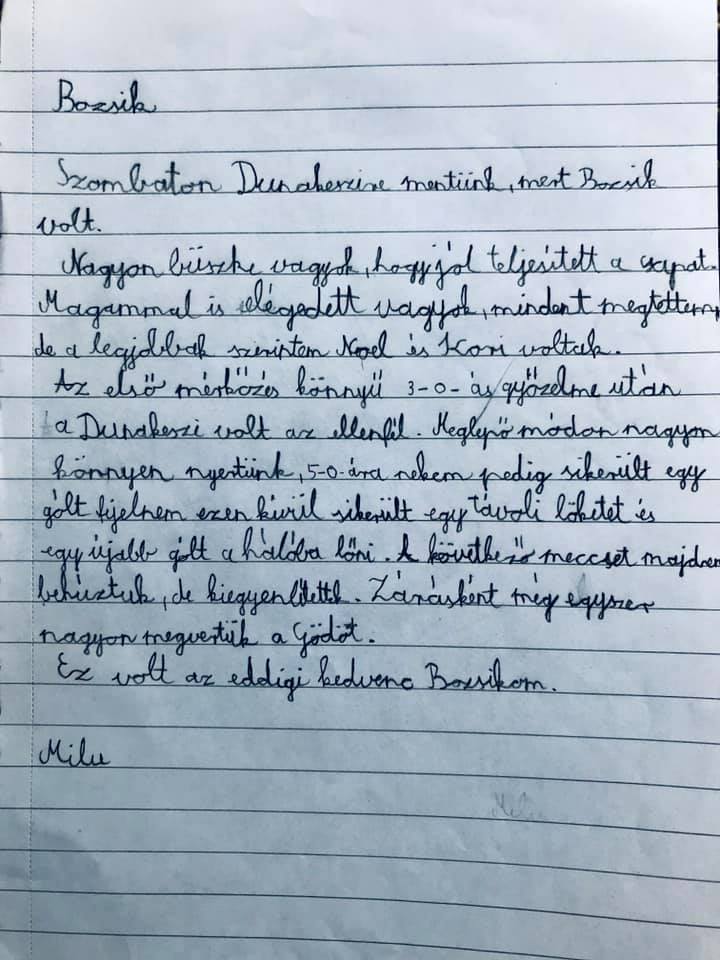 Bozsik
Szombaton Dunakeszire mentünk, mert Bozsik
volt.
Nagyon büszke vagyok, hogy jól teljesített a csapat.
Magammal is elégedett vagyok, mindent megtettem,
de a legjobbak szerintem Noel és Kori voltak.
Az első mérkőzés könnyű 3-0-ás győzelme után
a Dunakeszi volt az ellenfél. Meglepő módon nagyon
könnyen nyertünk, 5-0-ára nekem pedig sikerült egy
gólt fijelnem ezen kívül sikerült egy távoli löketet és
egy újabb gólt a hálóba lőni. A következő meccset majdnem
behúztuk, de kiegyenlítettek. Zárásként még egyszer
nagyon megvertük a Gödöt.
Ez volt az eddigi kedvenc Bozsikom.
Milu
Milu